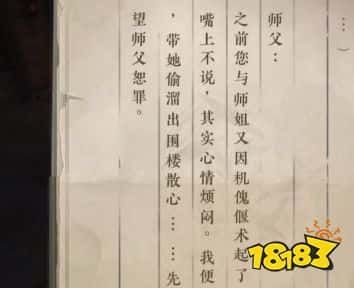 …）
师父：
之前您与师姐又因机傀偃术起了
嘴上不说，其实心情烦闷。我便
，带她偷溜出围楼散心……先
望师父恕罪。
18183